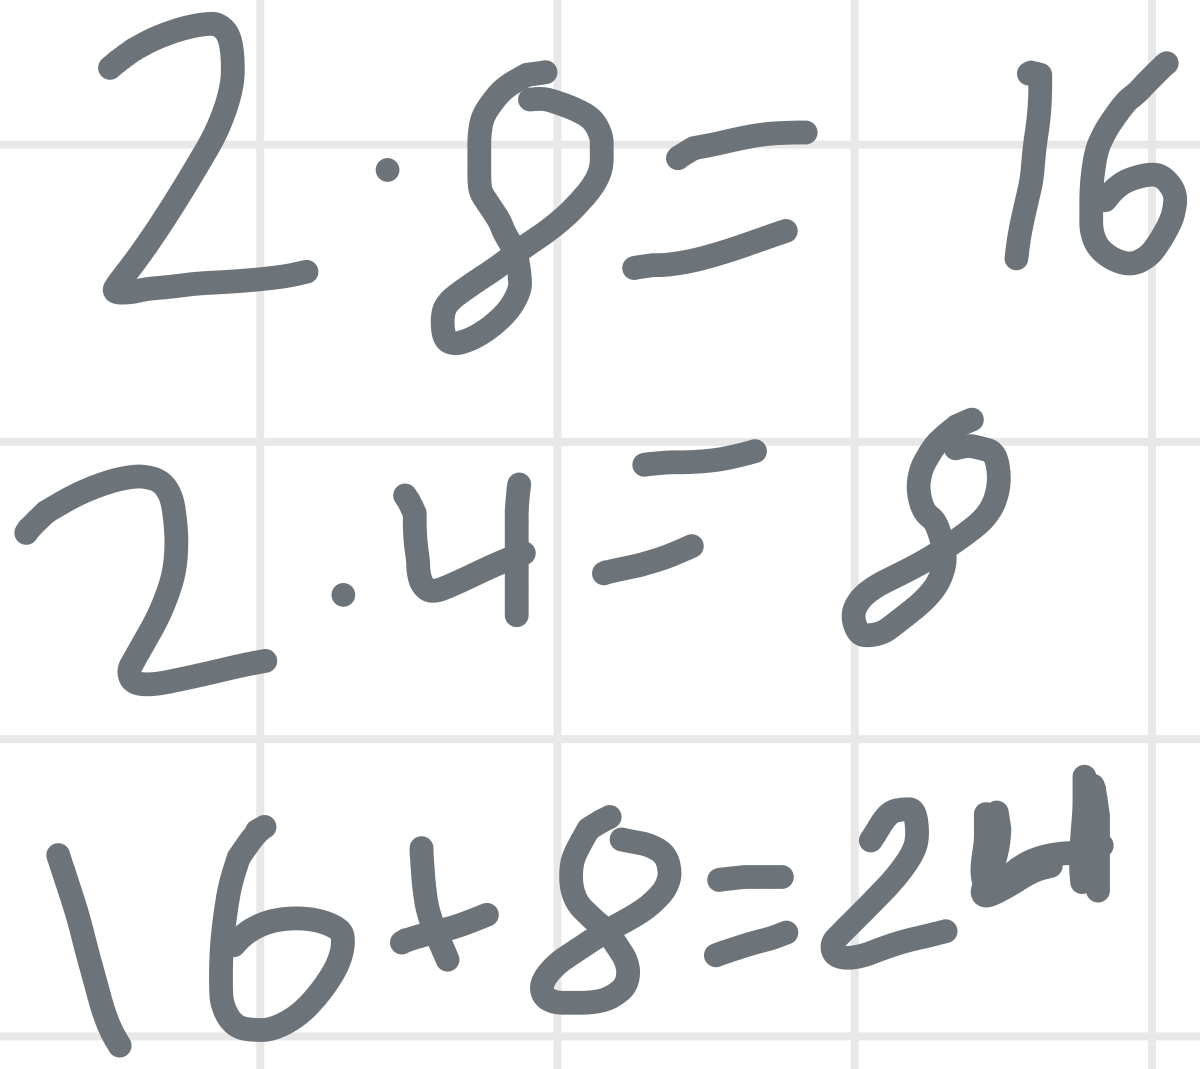 2 · 8 = 16
2 · 4 = 8
16 + 8 = 24